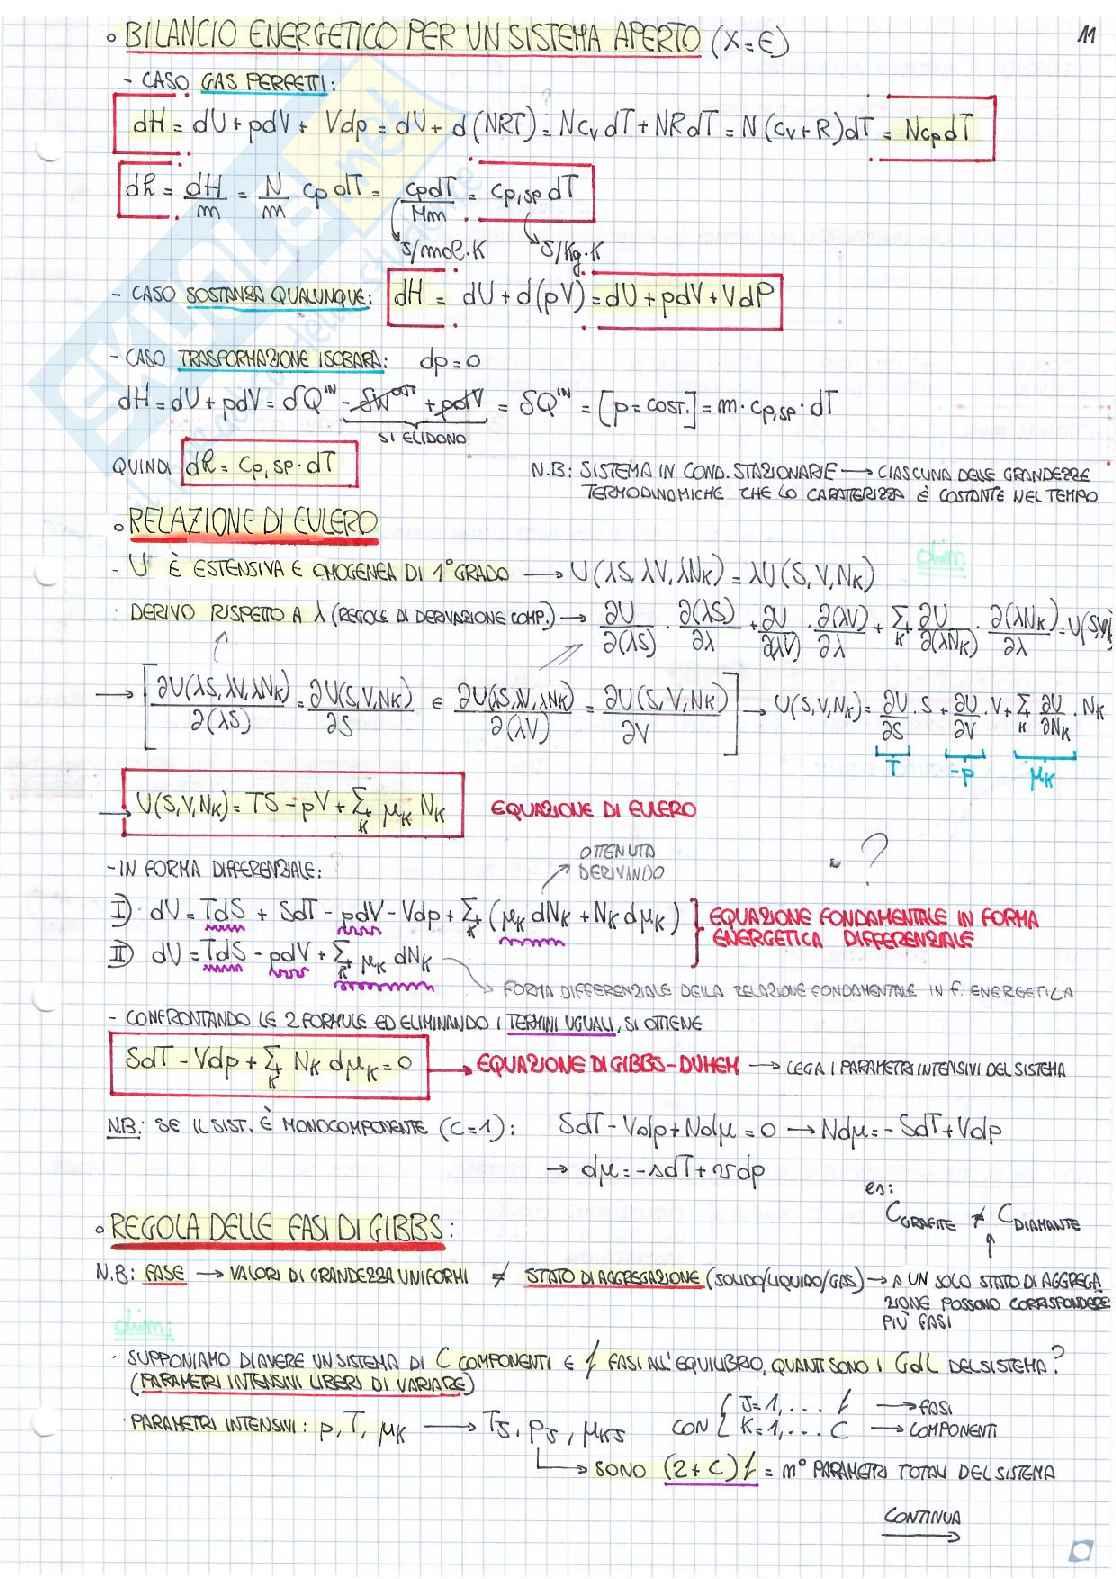 11
∘ BILANCIO ENERGETICO PER UN SISTEMA APERTO (X=E)
- CASO GAS PERFETTI:
dH = dU + pdV + Vdp = dU + d(NRT) = N cv dT + NR dT = N(cv+R)dT = N cp dT
dh = dH/m = N/m cp dT = cp dT/Mm = cp,sp dT
J/mol·K J/Kg·K
- CASO SOSTANZA QUALUNQUE: dH = dU + d(pV) = dU + pdV + VdP
- CASO TRASFORMAZIONE ISOBARA: dp=0
dH = dU + pdV = δQ^IN - δW^OUT + pdV = δQ^IN = [p=COST.] = m·cp,sp·dT
SI ELIDONO
QUINDI dh = cp,sp·dT
N.B: SISTEMA IN COND. STAZIONARIE → CIASCUNA DELLE GRANDEZZE
TERMODINOMICHE CHE LO CARATERIZZA È COSTANTE NEL TEMPO
∘ RELAZIONE DI EULERO
dim
- U È ESTENSIVA E OMOGENEA DI 1° GRADO → U(λS, λV, λNK) = λU(S,V,NK)
DERIVO RISPETTO A λ (REGOLE DI DERIVAZIONE COMP.) → ∂U/∂(λS) · ∂(λS)/∂λ + ∂U/∂(λV) · ∂(λV)/∂λ + Σ_K ∂U/∂(λNK) · ∂(λNK)/∂λ = U(S,V,
→ [∂U(λS,λV,λNK)/∂(λS) = ∂U(S,V,NK)/∂S E ∂U(λS,λV,λNK)/∂(λV) = ∂U(S,V,NK)/∂V] → U(S,V,NK) = ∂U/∂S · S + ∂U/∂V · V + Σ_K ∂U/∂NK · NK
T -p μK
→ U(S,V,NK) = TS - pV + Σ_K μK NK EQUAZIONE DI EULERO
- IN FORMA DIFFERENZIALE:
OTTENUTA
DERIVANDO
?
I) dU = TdS + SdT - pdV - Vdp + Σ_K (μK dNK + NK dμK)
II) dU = TdS - pdV + Σ_K μK dNK
EQUAZIONE FONDAMENTALE IN FORMA
ENERGETICA DIFFERENZIALE
FORMA DIFFERENZIALE DELLA RELAZIONE FONDAMENTALE IN F. ENERGETICA
- CONFRONTANDO LE 2 FORMULE ED ELIMINANDO I TERMINI UGUALI, SI OTTIENE
SdT - Vdp + Σ_K NK dμK = 0 → EQUAZIONE DI GIBBS-DUHEM → LEGA I PARAMETRI INTENSIVI DEL SISTEMA
N.B.: SE IL SIST. È MONOCOMPONENTE (C=1): SdT - Vdp + Ndμ = 0 → Ndμ = - SdT + Vdp
→ dμ = -sdT + vdp
es:
C GRAFITE ≠ C DIAMANTE
∘ REGOLA DELLE FASI DI GIBBS:
N.B: FASE → VALORI DI GRANDEZZA UNIFORMI ≠ STATO DI AGGREGAZIONE (SOLIDO/LIQUIDO/GAS) → A UN SOLO STATO DI AGGREGA
ZIONE POSSONO CORRISPONDERE
PIÙ FASI
dim:
- SUPPONIAMO DI AVERE UN SISTEMA DI C COMPONENTI E f FASI ALL'EQUILIBRIO, QUANTI SONO I GdL DEL SISTEMA?
(PARAMETRI INTENSIVI LIBERI DI VARIARE)
PARAMETRI INTENSIVI: p, T, μK → TJ, pJ, μKJ CON { J=1,... f → FASI
K=1,... C → COMPONENTI
→ SONO (2+C) f = n° PARAMETRI TOTALI DEL SISTEMA
CONTINUA →